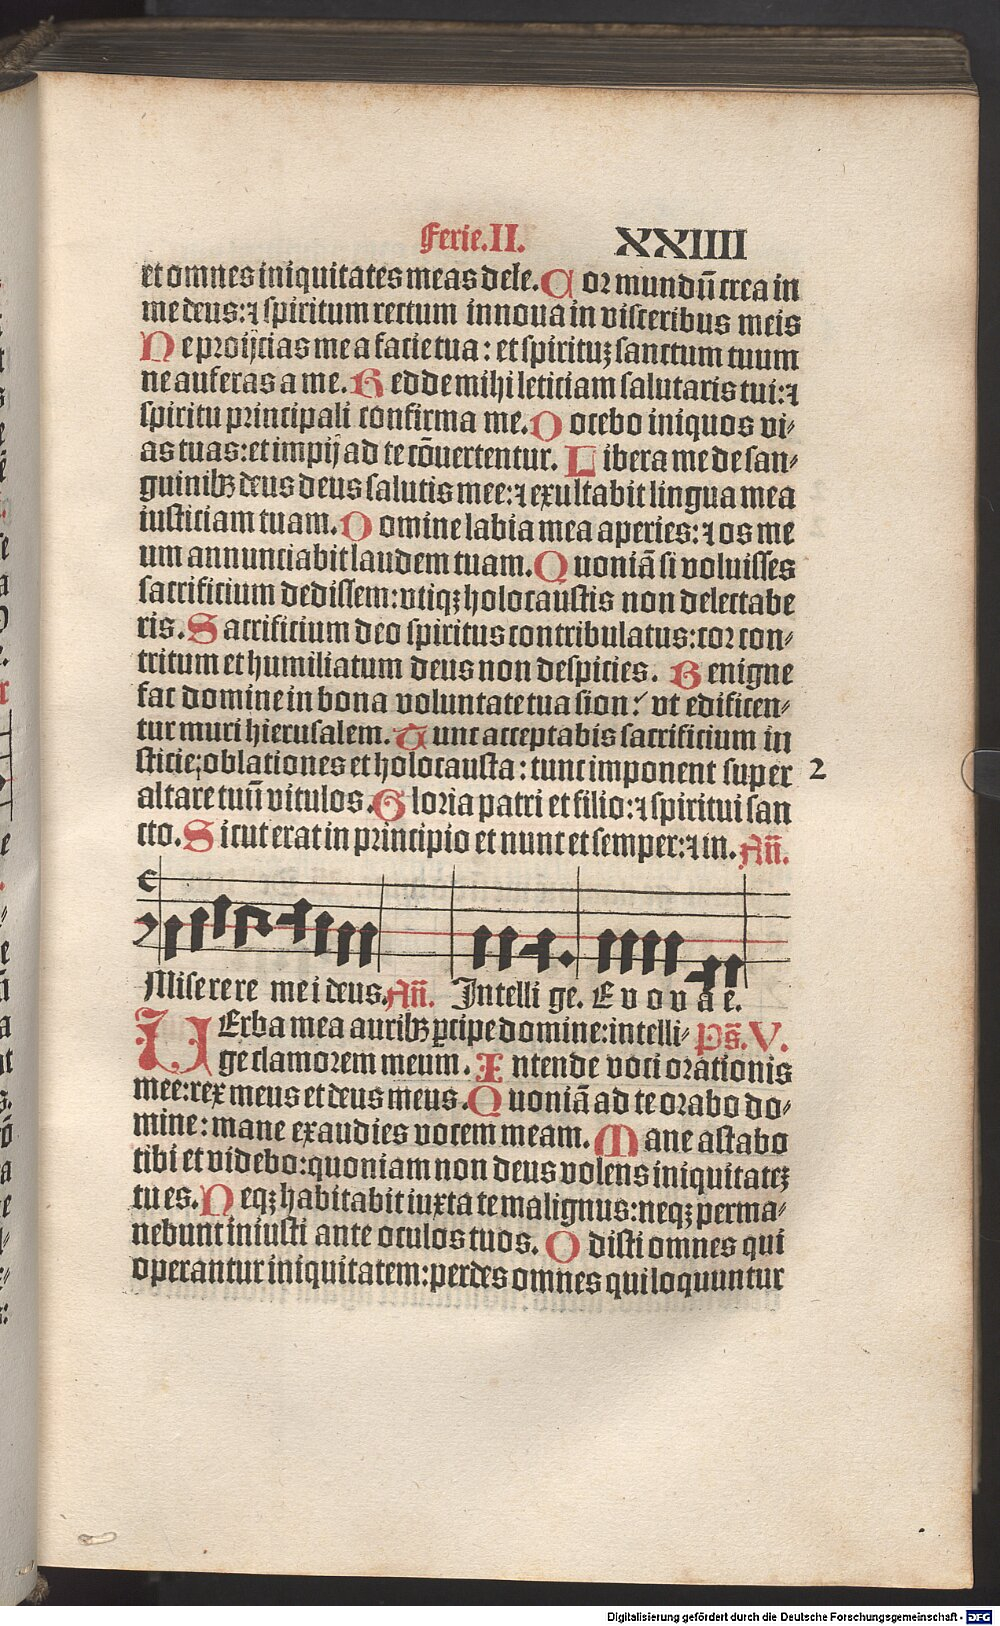 Ferie.II. XXIIII
et omnes iniquitates meas dele. Cor mundū crea in
me deus:⁊ spiritum rectum innoua in visceribus meis
Ne proijcias me a facie tua: et spirituꝫ sanctum tuum
ne auferas a me. Redde mihi leticiam salutaris tui:⁊
spiritu principali confirma me. Docebo iniquos vi⸗
as tuas: et impij ad te cōuertentur. Libera me de san⸗
guinibꝫ deus deus salutis mee:⁊ exultabit lingua mea
iusticiam tuam. Domine labia mea aperies:⁊ os me
um annunciabit laudem tuam. Quoniā si voluisses
sacrificium dedissem: vtiqꝫ holocaustis non delectabe
ris. Sacrificium deo spiritus contribulatus: cor con⸗
tritum et humiliatum deus non despicies. Benigne
fac domine in bona voluntate tua sion: vt edificen⸗
tur muri hierusalem. Tunc acceptabis sacrificium iu
sticie; oblationes et holocausta: tunc imponent super 2
altare tuū vitulos. Gloria patri et filio:⁊ spiritui san
cto. Sicut erat in principio et nunc et semper:⁊ in. Añ.
Miserere mei deus. Añ. Intellige. Euouae.
VErba mea auribꝫ ꝑcipe domine: intelli⸗ Ps̄. V.
ge clamorem meum. Intende voci orationis
mee: rex meus et deus meus. Quoniā ad te orabo do⸗
mine: mane exaudies vocem meam. Mane astabo
tibi et videbo: quoniam non deus volens iniquitateꝫ
tu es. Neqꝫ habitabit iuxta te malignus: neqꝫ perma⸗
nebunt iniusti ante oculos tuos. Odisti omnes qui
operantur iniquitatem: perdes omnes qui loquuntur
Digitalisierung gefördert durch die Deutsche Forschungsgemeinschaft - DFG